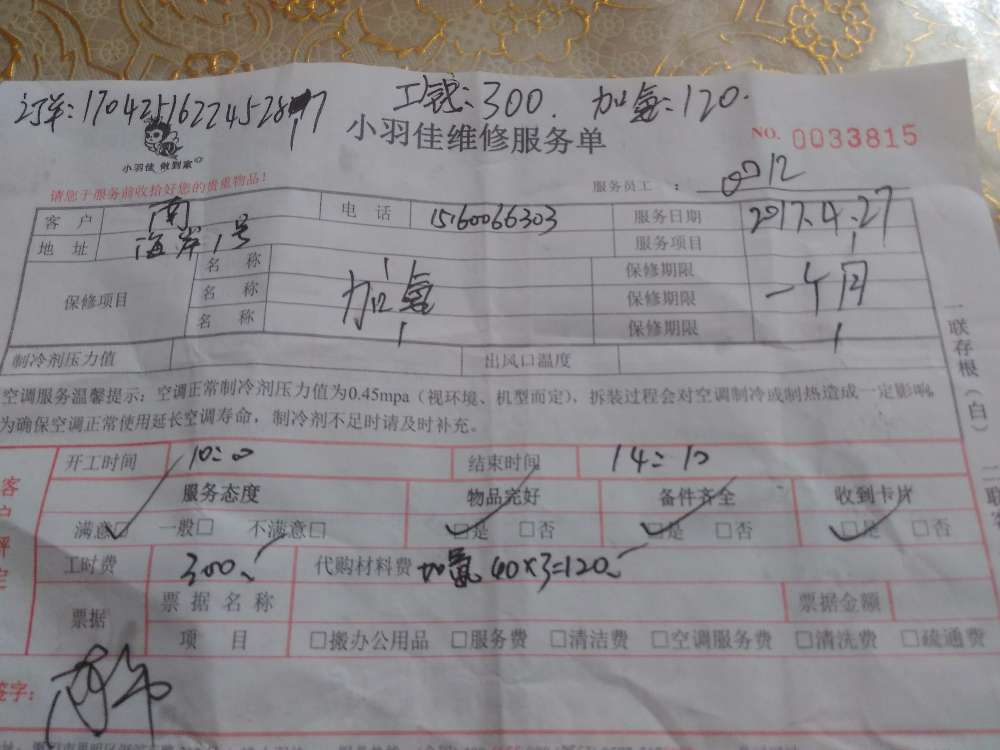 订单:17042516224528 工费:300. 加氟:120.
小羽佳维修服务单 NO. 0033815
小羽佳 做到家
请您于服务前收拾好您的贵重物品! 服务员工 : 0012
客 户 电 话 15160066303 服务日期 2017.4.27
地 址 海岸1号 服务项目
保修项目 名 称 保修期限
名 称 加氟 保修期限 一个月
名 称 保修期限
制冷剂压力值 出风口温度
空调服务温馨提示:空调正常制冷剂压力值为0.45mpa(视环境、机型而定),拆装过程会对空调制冷或制热造成一定影响。
为确保空调正常使用延长空调寿命,制冷剂不足时请及时补充。
一联存根(白) 二联客
客户评定
开工时间 10:00 结束时间 14:10
服务态度 物品完好 备件齐全 收到卡片
满意☑ 一般□ 不满意□ ☑是 □否 ☑是 □否 ☑是 □否
工时费 300 代购材料费 加氟 40×3=120
票据 票据名称 票据金额
项 目 □搬办公用品 □服务费 □清洁费 □空调服务费 □清洗费 □疏通费
签字: